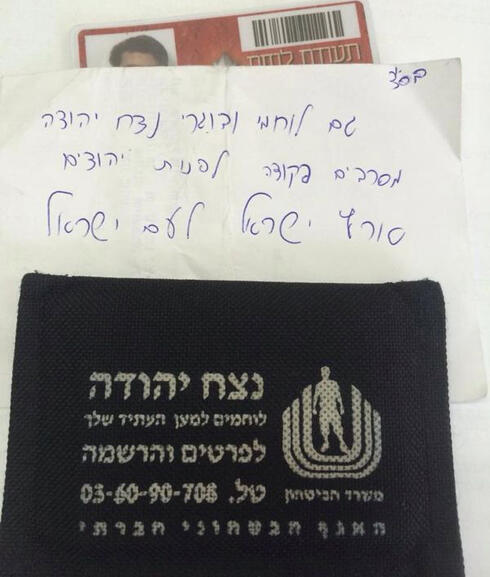 בס"ד
גם לוחמי ובוגרי נצח יהודה
מסרבים פקודה לפנות יהודים
ארץ ישראל לעם ישראל
נצח יהודה
לוחמים למען העתיד שלך
לפרטים והרשמה
טל. 03-60-90-708
משרד הביטחון
האגף הבטחוני חברתי